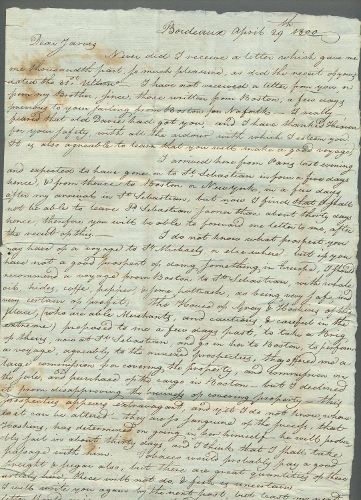 Bordeaux April 29th 1800
Dear Jarvis
Never did I receive a letter which gave me
one thousandth part so much pleasure, as did the receipt of yours
dated the 21st Ultimo. I have not received a letter from you or
from my Brother since those written from Boston, a few days
previous to your sailing from Boston for Norfolk. I really
feared that old Davis had got you and I now thank Heaven
for your safety, with all the ardour with which I love you
It is also agreeable to learn that you will make a good voyage
I arrived here from Paris last evening
and expected to have gone on to St Sebastian in from a few days
hence, & from thence to Boston or New york, in a few days
after my arrival in St Sebastian, but now I find that I shall
not be able to leave St Sebastian sooner than about thirty days
hence, therefore you will be able to forward me letters to me, after
the receipt of this. I do not know what prospect you
may have of a voyage to St Michaels or elsewhere but if you
have not a good prospect of doing something in I
recommend a voyage from Boston to St Sebastian, with whale
oil, hides, coffe, and some, as being very safe and
very certain of profit. The House of Gray & of this
place, (who are able Merchants, and cautious & careful in the
extreme) proposed to me a few days past, to take a Brig
of theirs, now at St Sebastian, and go in her to Boston, to perform
a voyage, agreeably to the annexed prospectus, they offered me a
large commission for covering the property, and commission on
the sale and purchase of the cargo in Boston but I declined
it, not approving the mode of covering property. This
prospectus appears extravagant, and yet I do not know where
has determined on going in her himself he will probably
sail in about thirty days and I think that I shall take
passage with him. Tobacco would probably pay a good
freight & sugar also, but there are great quantities of these
articles here, these will not do, & fish is very uncertain
I write you again by the next post and